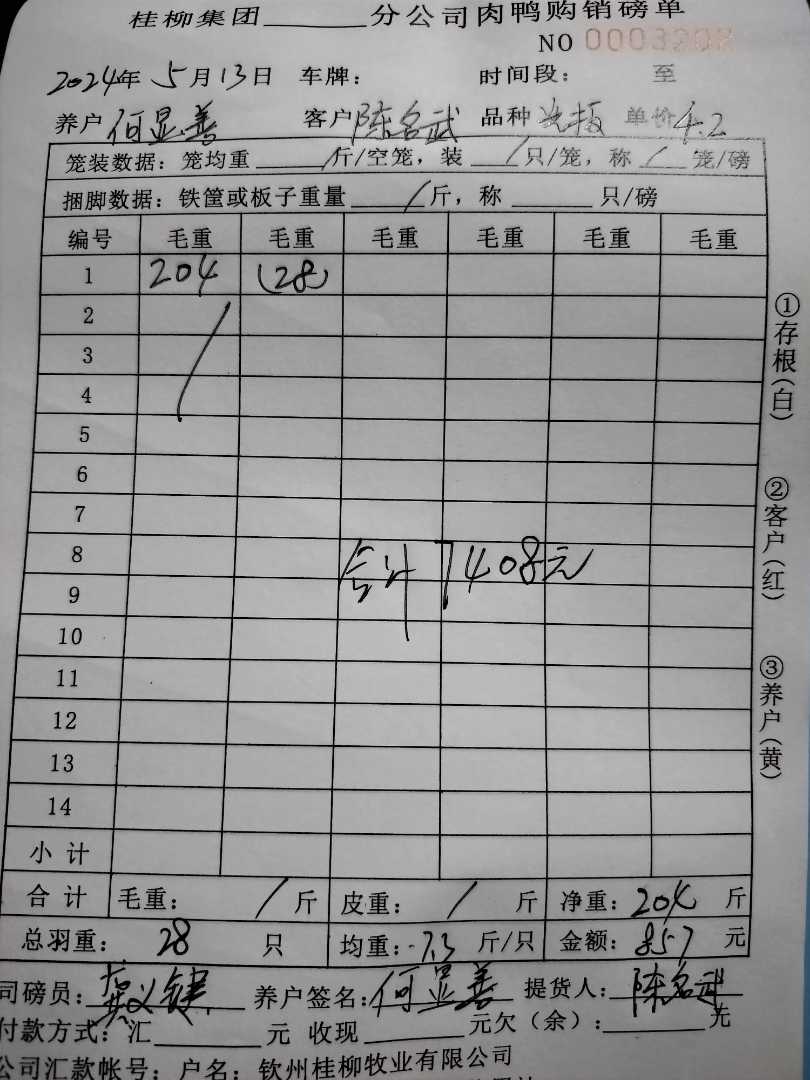 桂柳集团______分公司肉鸭购销磅单
NO
2024年 5月13日 车牌： 时间段： 至
养户 何显善 客户 陈名武 品种 单价 4.2
笼装数据：笼均重____/斤/空笼，装__/只/笼，称_/_笼/磅
捆脚数据：铁筐或板子重量____/斤，称______只/磅
编号 毛重 毛重 毛重 毛重 毛重 毛重
1 204 (28)
2
3
4
5
6
7
8
合计7408元
9
10
11
12
13
14
小计
合计 毛重： / 斤 皮重： / 斤 净重：204 斤
总羽重： 28 只 均重：7.3 斤/只 金额：857 元
①存根(白)
②客户(红)
③养户(黄)
司磅员： 养户签名：何显善 提货人：陈名武
付款方式：汇______元 收现______元欠（余）：______元
公司汇款帐号：户名：钦州桂柳牧业有限公司